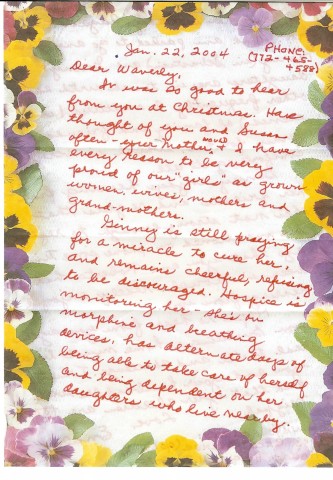 Jan. 22, 2004
PHONE:
(772-465-
4588)
Dear Waverly,
It was so good to hear
from you at Christmas. Have
thought of you and Susan
often - your mother, & I would have
every reason to be very
proud of our "girls" as grown
women, wives, mothers and
grand-mothers.
Ginny is still praying
for a miracle to cure her,
and remains cheerful, refusing
to be discouraged. Hospice is
monitoring her - she's on
morphine and breathing
devices, has alternate days of
being able to take care of herself
and being dependent on her
daughters who live nearby.